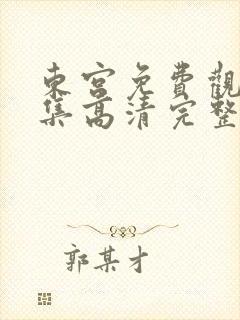 東宮免費觀
集高清完整
郭某才